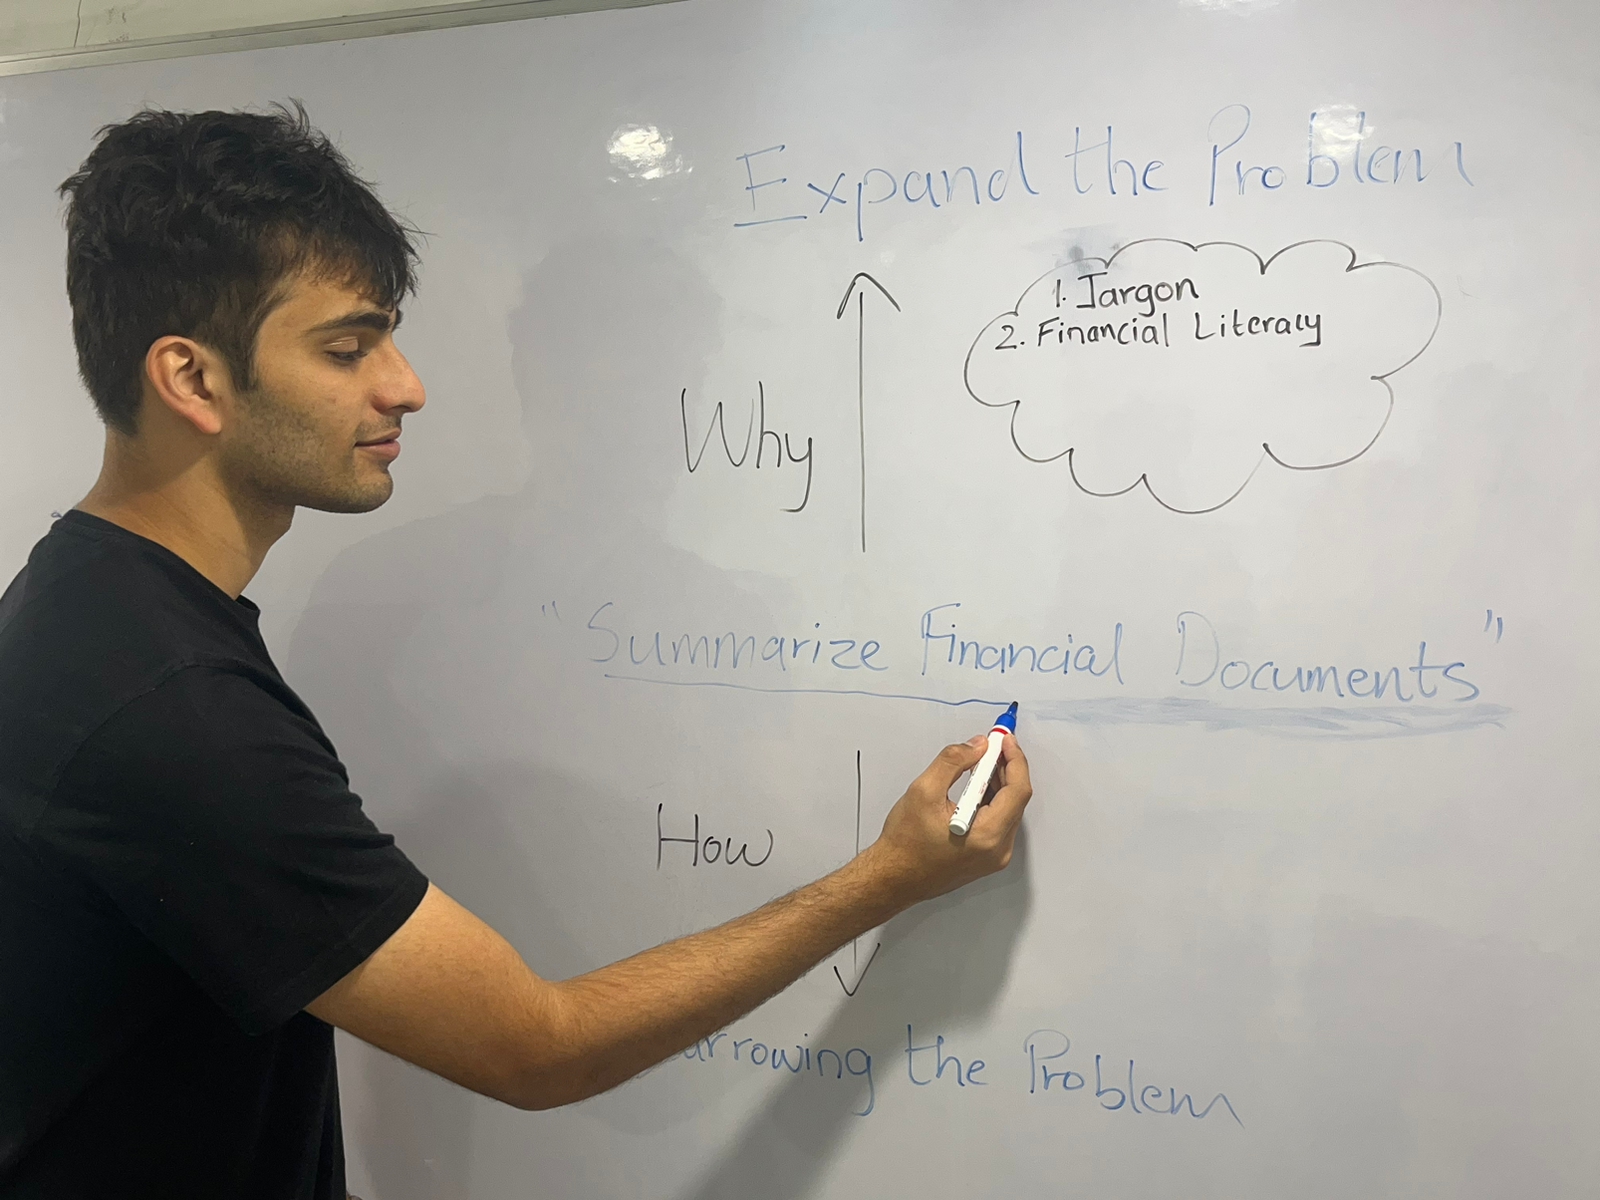 Expand the Problem
1. Jargon
2. Financial Literacy
Why
"Summarize Financial Documents"
How
arrowing the Problem